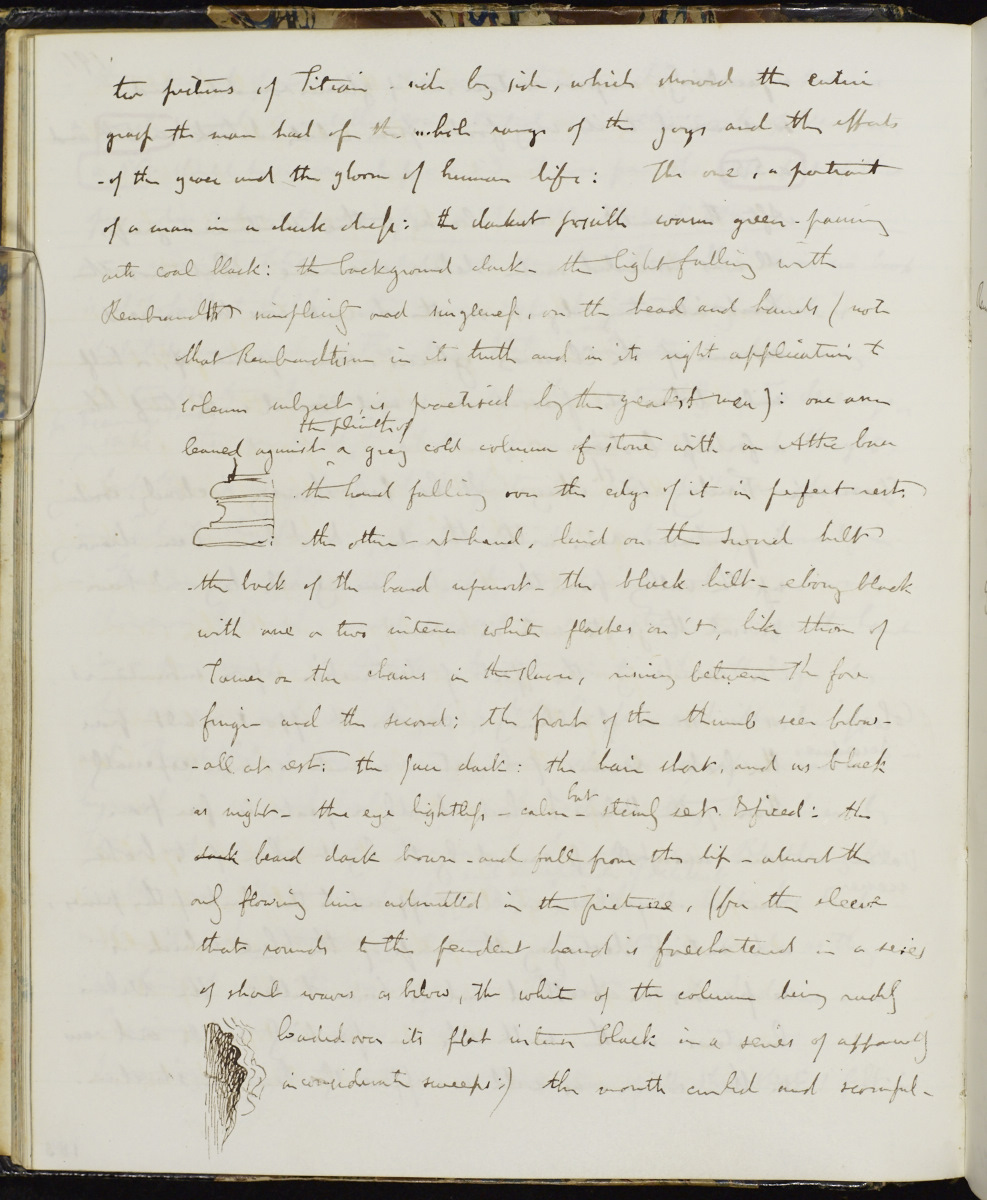 two pictures of Titian - side by side, which showed the entire
grasp the man had of the whole range of the joys and the efforts
- of the grace and the gloom of human life: The one, a portrait
of a man in a dark dress: the darkest possible warm green - passing
into coal black: the background dark - the light falling with
simplicity and singleness, on the head and hands (note
that Rembrandtism in its truth and in its right application to
solemn subject, is practised by the greatest men): one arm
the plinth of
leaned against a grey cold column of stone with an Attic base
the hand falling over the edge of it in perfect rest.
: the other - rt hand, laid on the sword hilt
the back of the hand upmost - the black hilt - ebony black
with one or two intense white flashes on it, like those of
Turner on the chains in the Slaver, rising between the fore
finger and the second: the front of the thumb seen below -
- all at rest: the face dark: the hair short, and as black
but
as night - the eye lightless - calm - sternly set & fixed: the
dark beard dark brown - and falls from the lip - almost the
only flowing line admitted in the picture, (for the sleeve
that rounds to the pendent hand is foreshortened in a series
of short waves as below, the white of the column being rudely
loaded over its flat intense black in a series of apparently
inconsiderate sweeps:) the mouth curled and scornful -